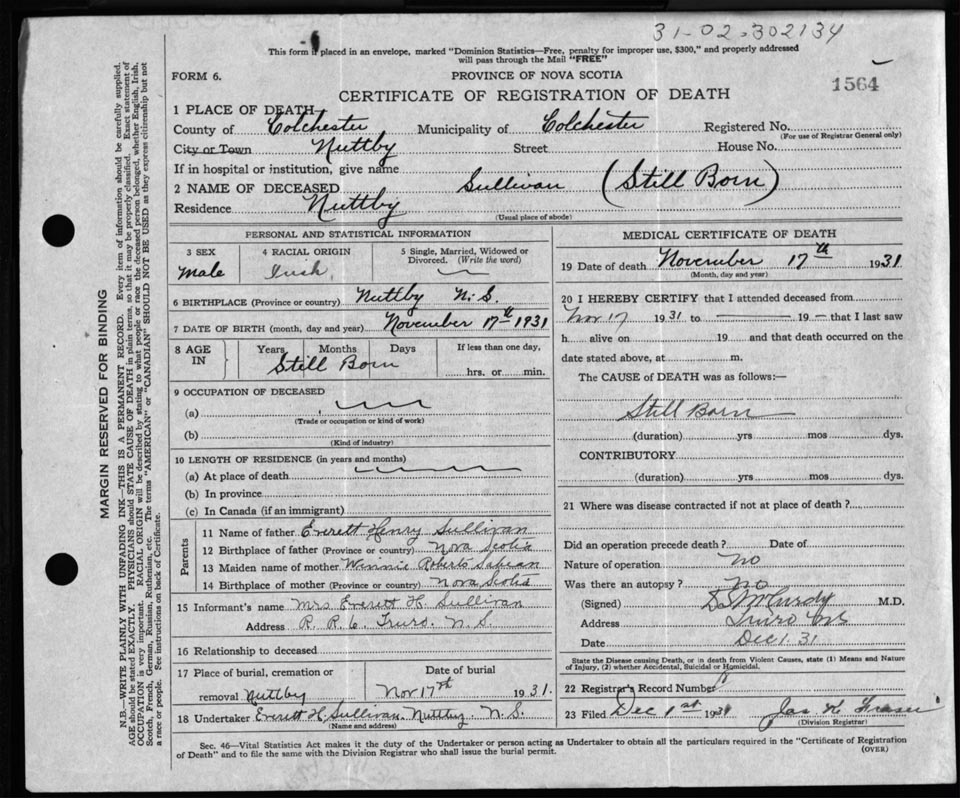 31-02-302134
This form if placed in an envelope, marked "Dominion Statistics—Free, penalty for improper use, $300," and properly addressed
will pass through the Mail "FREE"
FORM 6.
PROVINCE OF NOVA SCOTIA
1564
CERTIFICATE OF REGISTRATION OF DEATH
1 PLACE OF DEATH
County of Colchester Municipality of Colchester Registered No.
(For use of Registrar General only)
City or Town Nuttby Street House No.
If in hospital or institution, give name
2 NAME OF DECEASED Sullivan (Still Born)
Residence Nuttby
(Usual place of abode)
PERSONAL AND STATISTICAL INFORMATION
3 SEX 4 RACIAL ORIGIN 5 Single, Married, Widowed or
Divorced. (Write the word)
Male Irish
6 BIRTHPLACE (Province or country) Nuttby N.S.
7 DATE OF BIRTH (month, day and year) November 17th 1931
8 AGE IN Years Months Days If less than one day,
Still Born hrs. or min.
9 OCCUPATION OF DECEASED
(a)
(Trade or occupation or kind of work)
(b)
(Kind of industry)
10 LENGTH OF RESIDENCE (in years and months)
(a) At place of death
(b) In province
(c) In Canada (if an immigrant)
Parents
11 Name of father Everett Henry Sullivan
12 Birthplace of father (Province or country) Nova Scotia
13 Maiden name of mother Winnie Roberts
14 Birthplace of mother (Province or country) Nova Scotia
15 Informant's name Mrs Everett H. Sullivan
Address R. R. 6. Truro. N. S.
16 Relationship to deceased
17 Place of burial, cremation or Date of burial
removal Nuttby Nov 17th 1931.
18 Undertaker Everett H. Sullivan. Nuttby N. S.
(Name and address)
MEDICAL CERTIFICATE OF DEATH
19 Date of death November 17th 1931
(Month, day and year)
20 I HEREBY CERTIFY that I attended deceased from
Nov 17 1931 to 19 — that I last saw
h alive on 19 and that death occurred on the
date stated above, at m.
The CAUSE of DEATH was as follows:—
Still Born
(duration) yrs mos dys.
CONTRIBUTORY
(duration) yrs mos dys.
21 Where was disease contracted if not at place of death?
Did an operation precede death? Date of
Nature of operation No
Was there an autopsy? No
(Signed) McCurdy M.D.
Address Truro NS
Date Dec 1. 31
State the Disease causing Death, or in death from Violent Causes, state (1) Means and Nature
of Injury, (2) whether Accidental, Suicidal or Homicidal.
22 Registrar's Record Number
23 Filed Dec 1st 1931 Jas K. Fraser
(Division Registrar)
Sec. 46—Vital Statistics Act makes it the duty of the Undertaker or person acting as Undertaker to obtain all the particulars required in the "Certificate of Registration
of Death" and to file the same with the Division Registrar who shall issue the burial permit.
(OVER)
MARGIN RESERVED FOR BINDING
N.B.—WRITE PLAINLY WITH UNFADING INK—THIS IS A PERMANENT RECORD. Every item of information should be carefully supplied.
AGE should be stated EXACTLY. PHYSICIANS should STATE CAUSE OF DEATH in plain terms, so that it may be properly classified. Exact statement of
OCCUPATION is very important. RACIAL ORIGIN will be described by stating to what people or race the deceased person belonged, whether English, Irish,
Scotch, French, German, Russian, Ruthenian, etc. The terms "AMERICAN" or "CANADIAN" SHOULD NOT BE USED as they express citizenship but not
a race or people. See instructions on back of Certificate.